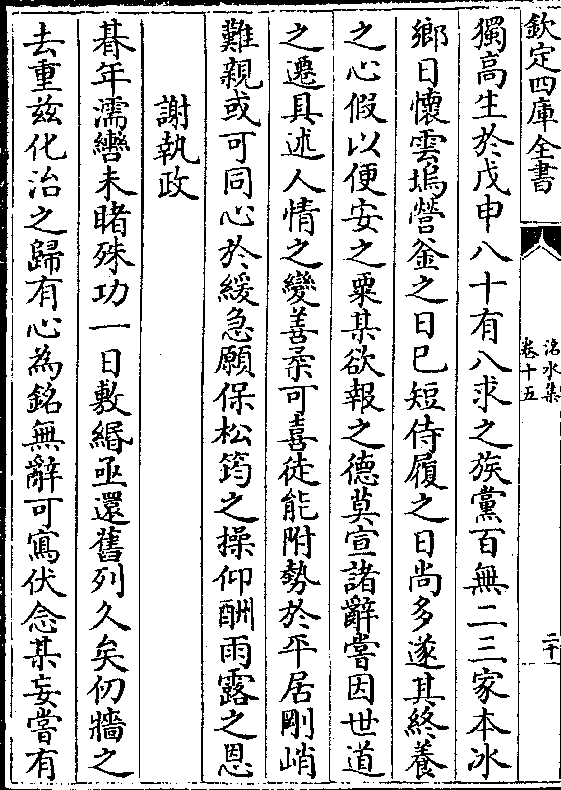 欽定四庫全書
洺水集
卷十五
二十
獨高生於戊申八十有八求之族黨百無二三家本冰
鄉日懷雲塢營釡之日已短侍履之日尚多遂其終養
之心假以便安之粟某欲報之德莫宣諸辭嘗因世道
之遷具述人情之變善柔可喜徒能附勢於平居剛峭
難親或可同心於緩急願保松筠之操仰酬雨露之恩
謝執政
朞年濡轡未睹殊功一日敷緡亟還舊列久矣仞牆之
去重兹化治之歸有心為銘無辭可寫伏念某妄嘗有